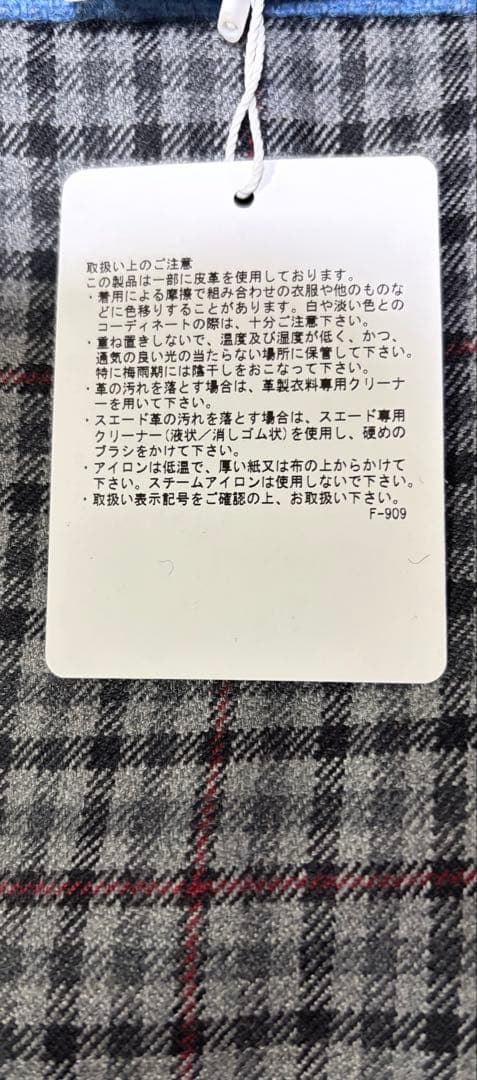 取扱い上のご注意
この製品は一部に皮革を使用しております。
・着用による摩擦で組み合わせの衣服や他のものな
どに色移りすることがあります。白や淡い色との
コーディネートの際は、十分ご注意下さい。
・重ね置きしないで、温度及び湿度が低く、かつ、
通気の良い光の当たらない場所に保管して下さい。
特に梅雨期には陰干しをおこなって下さい。
・革の汚れを落とす場合は、革製衣料専用クリーナ
ーを用いて下さい。
・スエード革の汚れを落とす場合は、スエード専用
クリーナー(液状／消しゴム状)を使用し、硬めの
ブラシをかけて下さい。
・アイロンは低温で、厚い紙又は布の上からかけて
下さい。スチームアイロンは使用しないで下さい。
・取扱い表示記号をご確認の上、お取扱い下さい。
F-909